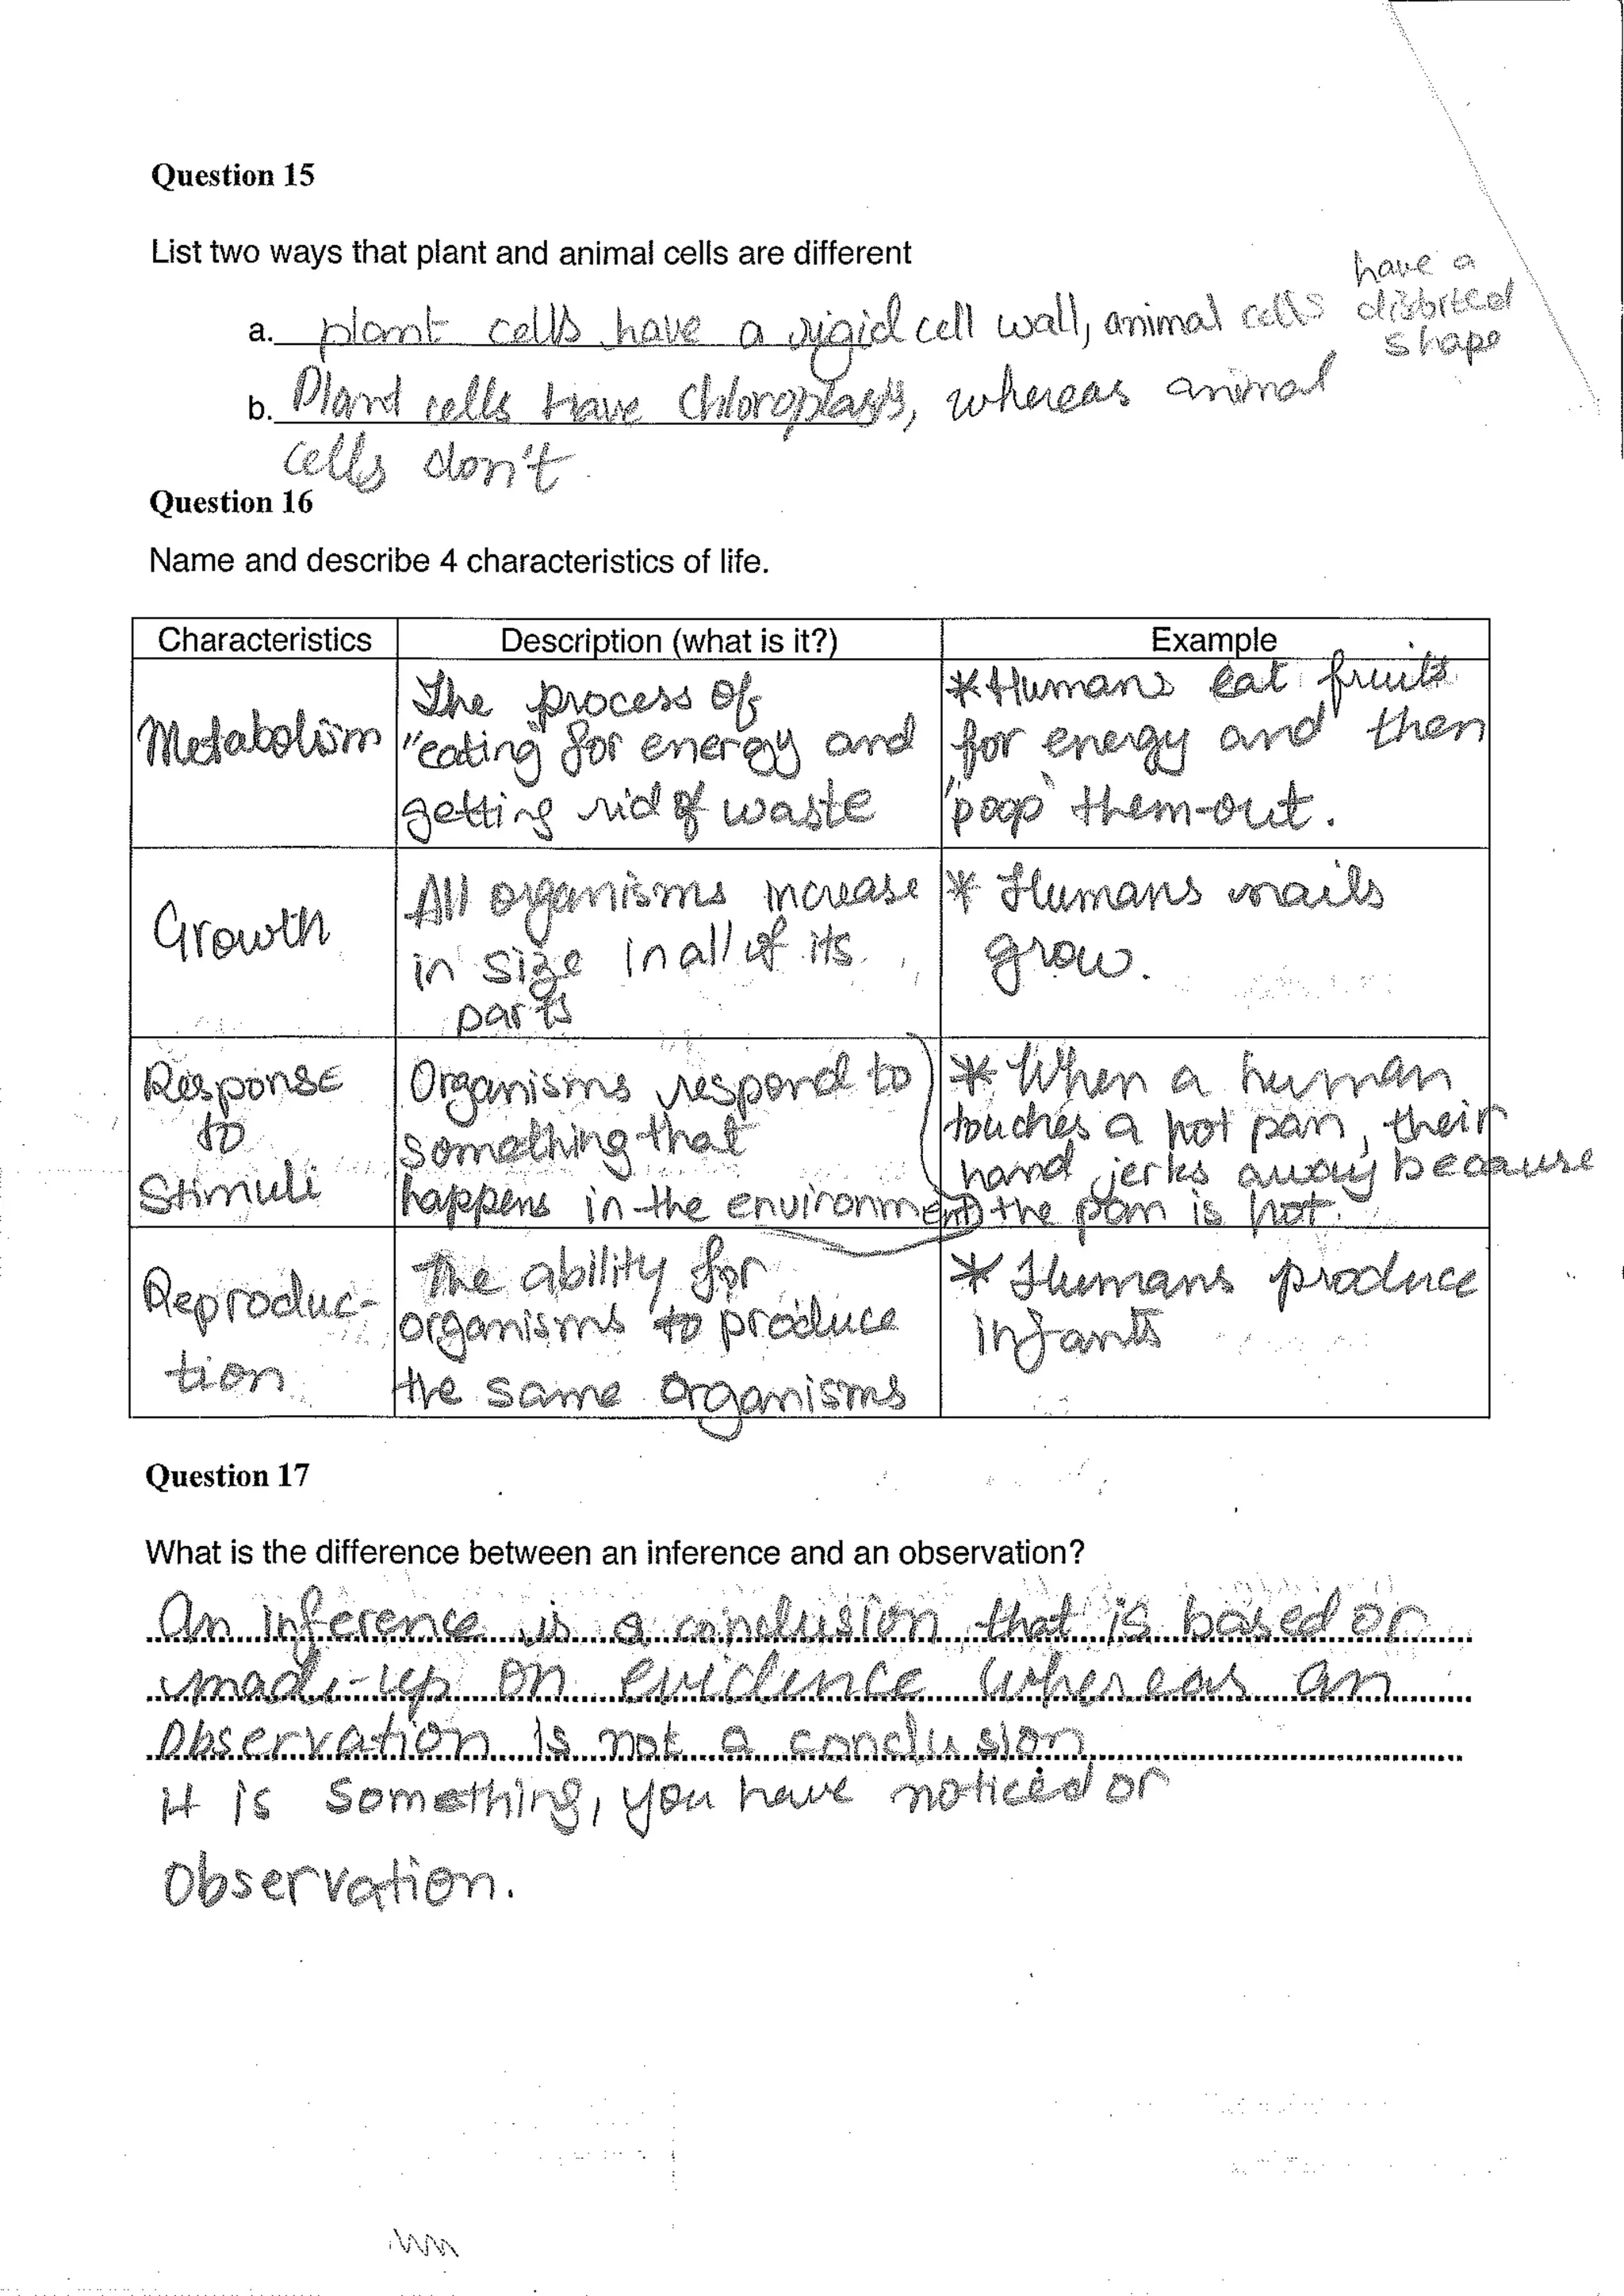 Question 15
List two ways that plant and animal cells are different
a. plant cells have a rigid cell wall, animal cells have a distorted shape
b. Plant cells have Chloroplasts, whereas animal
cells don't
Question 16
Name and describe 4 characteristics of life.
Characteristics Description (what is it?) Example
Metabolism
The process of
"eating for energy and
getting rid of waste
*Humans eat fruits
for energy and then
"poop" them-out.
Growth
All organisms increase
in size in all of its
parts
* Humans nails
grow.
Response
to
Stimuli
Organisms respond to
something that
happens in the environment
* When a human
touches a hot pan, their
hand jerks away because
the pan is hot.
Reproduc-
tion
The ability for
organisms to produce
the same organisms
* Humans produce
infants
Question 17
What is the difference between an inference and an observation?
An inference is a conclusion that is based or
made-up on evidence whereas an
Observation is not a conclusion
it is something, you have noticed or
Observation.